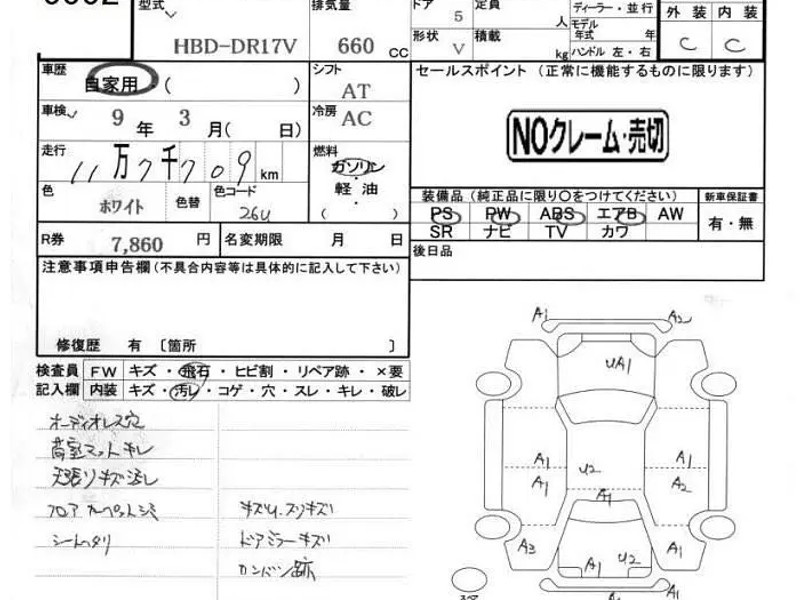 型式
HBD-DR17V
排気量
660 cc
ドア
5
定員
人
ディーラー・並行
モデル年式 年
ハンドル 左・右
形状
V
積載
kg
外装 内装
C C
車歴
自家用 ( )
シフト
AT
車検
9年 3月( 日)
冷房
AC
走行
11万7千709 km
燃料
ガソリン
軽油
( )
色
ホワイト
色替
色コード
26U
R券
7,860 円
名変期限 月 日
セールスポイント (正常に機能するものに限ります)
NOクレーム・売切
装備品 (純正品に限り〇をつけてください)
新車保証書
PS PW ABS エアB AW
有・無
SR ナビ TV カワ
後日品
注意事項申告欄(不具合内容等は具体的に記入して下さい)
修復歴 有 〔箇所 〕
検査員記入欄
FW キズ・飛石・ヒビ割・リペア跡・×要
内装 キズ・汚レ・コゲ・穴・スレ・キレ・破レ
オーディオレス穴
荷室マットキレ
天張りキズ汚レ
フロアカーペットシミ
シートヘタリ
キズU、スリキズ
ドアミラーキズ
カンバン跡
A1 A2
UA1
A1 U2 A1
A1 A1 A2
A3 A1 U2 A1
A1